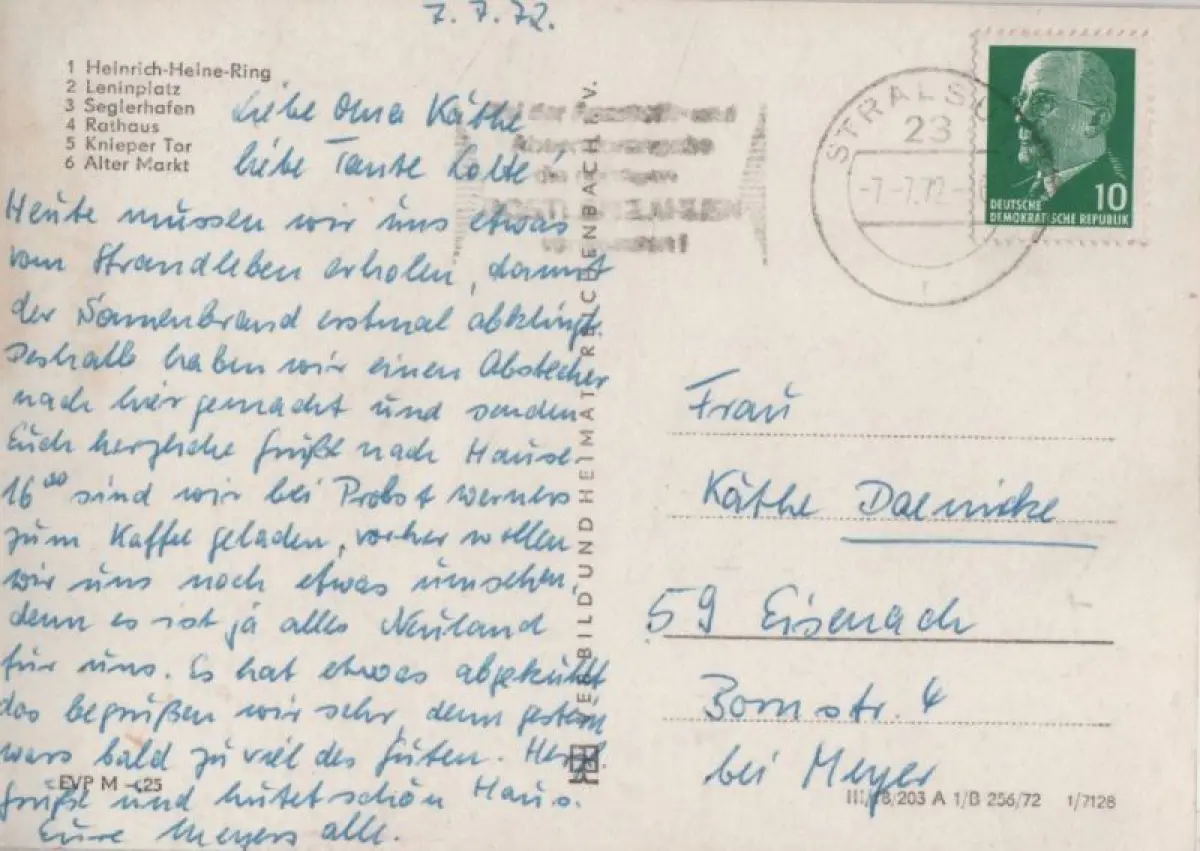 7.7.72.
1 Heinrich-Heine-Ring
2 Leninplatz
3 Seglerhafen
4 Rathaus
5 Knieper Tor
6 Alter Markt
Liebe Oma Käthe
liebe Tante Lotte!
Heute müssen wir uns etwas
vom Strandleben erholen, damit
der Sonnenbrand erstmal abklingt.
Deshalb haben wir einen Abstecher
nach hier gemacht und senden
Euch herzliche Grüße nach Hause.
16⁰⁰ sind wir bei Probst Werners
zum Kaffee geladen, vorher wollen
wir uns noch etwas umsehen,
denn es ist ja alles Neuland
für uns. Es hat etwas abgekühlt
das begrüßen wir sehr, denn gestern
wars bald zu viel des Guten. Herzl.
Grüße und hütet schön Haus.
Eure Meyers alle.
EVP M -,25
BILD UND HEIMAT REICHENBACH I. V.
STRALSUND
23
-7.-7.72
DEUTSCHE
DEMOKRATISCHE REPUBLIK
10
Frau
Käthe Daenicke
59 Eisenach
Bornstr. 4
bei Meyer
III/18/203 A 1/B 256/72 1/7128